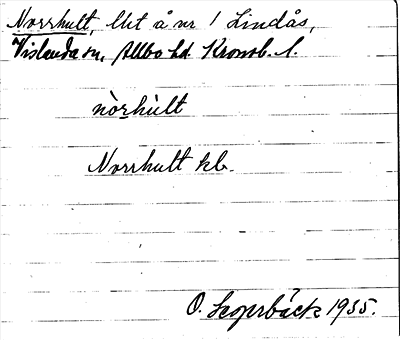 Norrhult, lht å nr 1 Lindås,
Vislanda sn, Allbo hd Kronob. l.
nòrhùlt
Norrhult kb.
O. 1935.